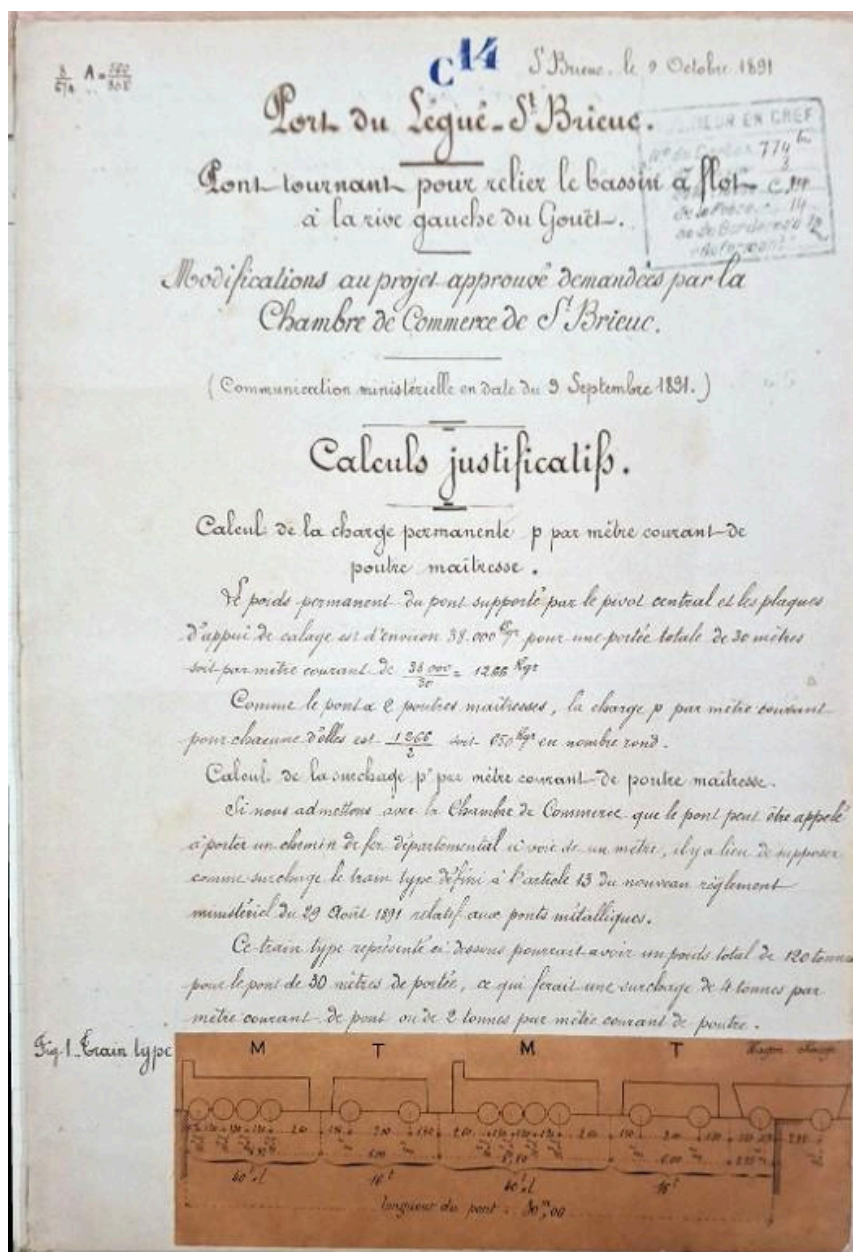 C 14
St Brieuc, le 9 Octobre 1891
Port du Légué-St Brieuc.
Pont tournant pour relier le bassin à flot
à la rive gauche du Gouët.
INGÉNIEUR EN CHEF
774
C 14
14
Modifications au projet approuvé demandées par la
Chambre de Commerce de St Brieuc.
(Communication ministérielle en date du 9 Septembre 1891.)
Calculs justificatifs.
Calcul de la charge permanente p par mètre courant de
poutre maîtresse.
Le poids permanent du pont supporté par le pivot central et les plaques
d'appui de calage est d'environ 38.000 Kgr pour une portée totale de 30 mètres
soit par mètre courant de 38 000/30 = 1266 Kgr
Comme le pont a 2 poutres maîtresses, la charge p par mètre courant
pour chacune d'elles est 1266/2 soit 650 Kgr en nombre rond.
Calcul de la surchage p' par mètre courant de poutre maîtresse.
Si nous admettons avec la Chambre de Commerce que le pont peut être appelé
à porter un chemin de fer départemental à voie de un mètre, il y a lieu de supposer
comme surcharge le train type défini à l'article 13 du nouveau règlement
ministériel du 29 Août 1891 relatif aux ponts métalliques.
Ce train type représenté ci dessous pourrait avoir un poids total de 120 tonnes
pour le pont de 30 mètres de portée, ce qui ferait une surcharge de 4 tonnes par
mètre courant de pont ou de 2 tonnes par mètre courant de poutre.
Fig. 1. Train type
M T M T Wagon chargé
longueur du pont : 30m,00